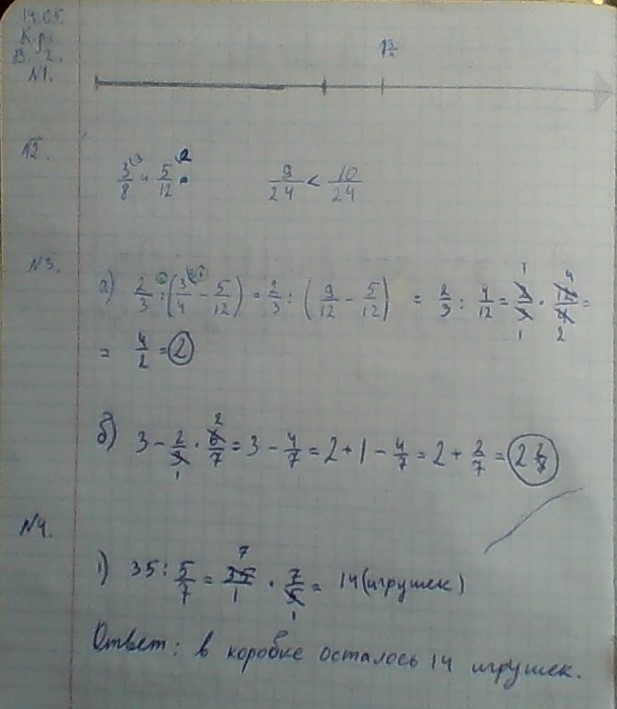 14.05.
К.р.
В. 2.
№1.
№2.
3/8 и 5/12 9/24 < 10/24
№3.
а) 2/3 : (3/4 - 5/12) = 2/3 : (9/12 - 5/12) = 2/3 : 4/12 = 2/3 · 12/4 =
= 4/2 = 2
б) 3 - 2/3 · 6/7 = 3 - 4/7 = 2 + 1 - 4/7 = 2 + 3/7 = 2 3/7
№4.
1) 35 : 5/7 = 35/1 · 7/5 = 14 (игрушек)
Ответ: в коробке осталось 14 игрушек.